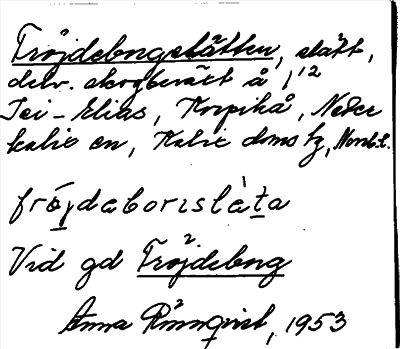 Fröjdeborgslåtten, slått,
delv. skogbeväxt å 1/2
Tei-Elias, Korpikå, Neder
kalix sn, Kalix doms hg, Norrb.l.
frö̀jdaborıslàta
Vid gd Fröjdeborg
Anna Rönnqvist, 1953